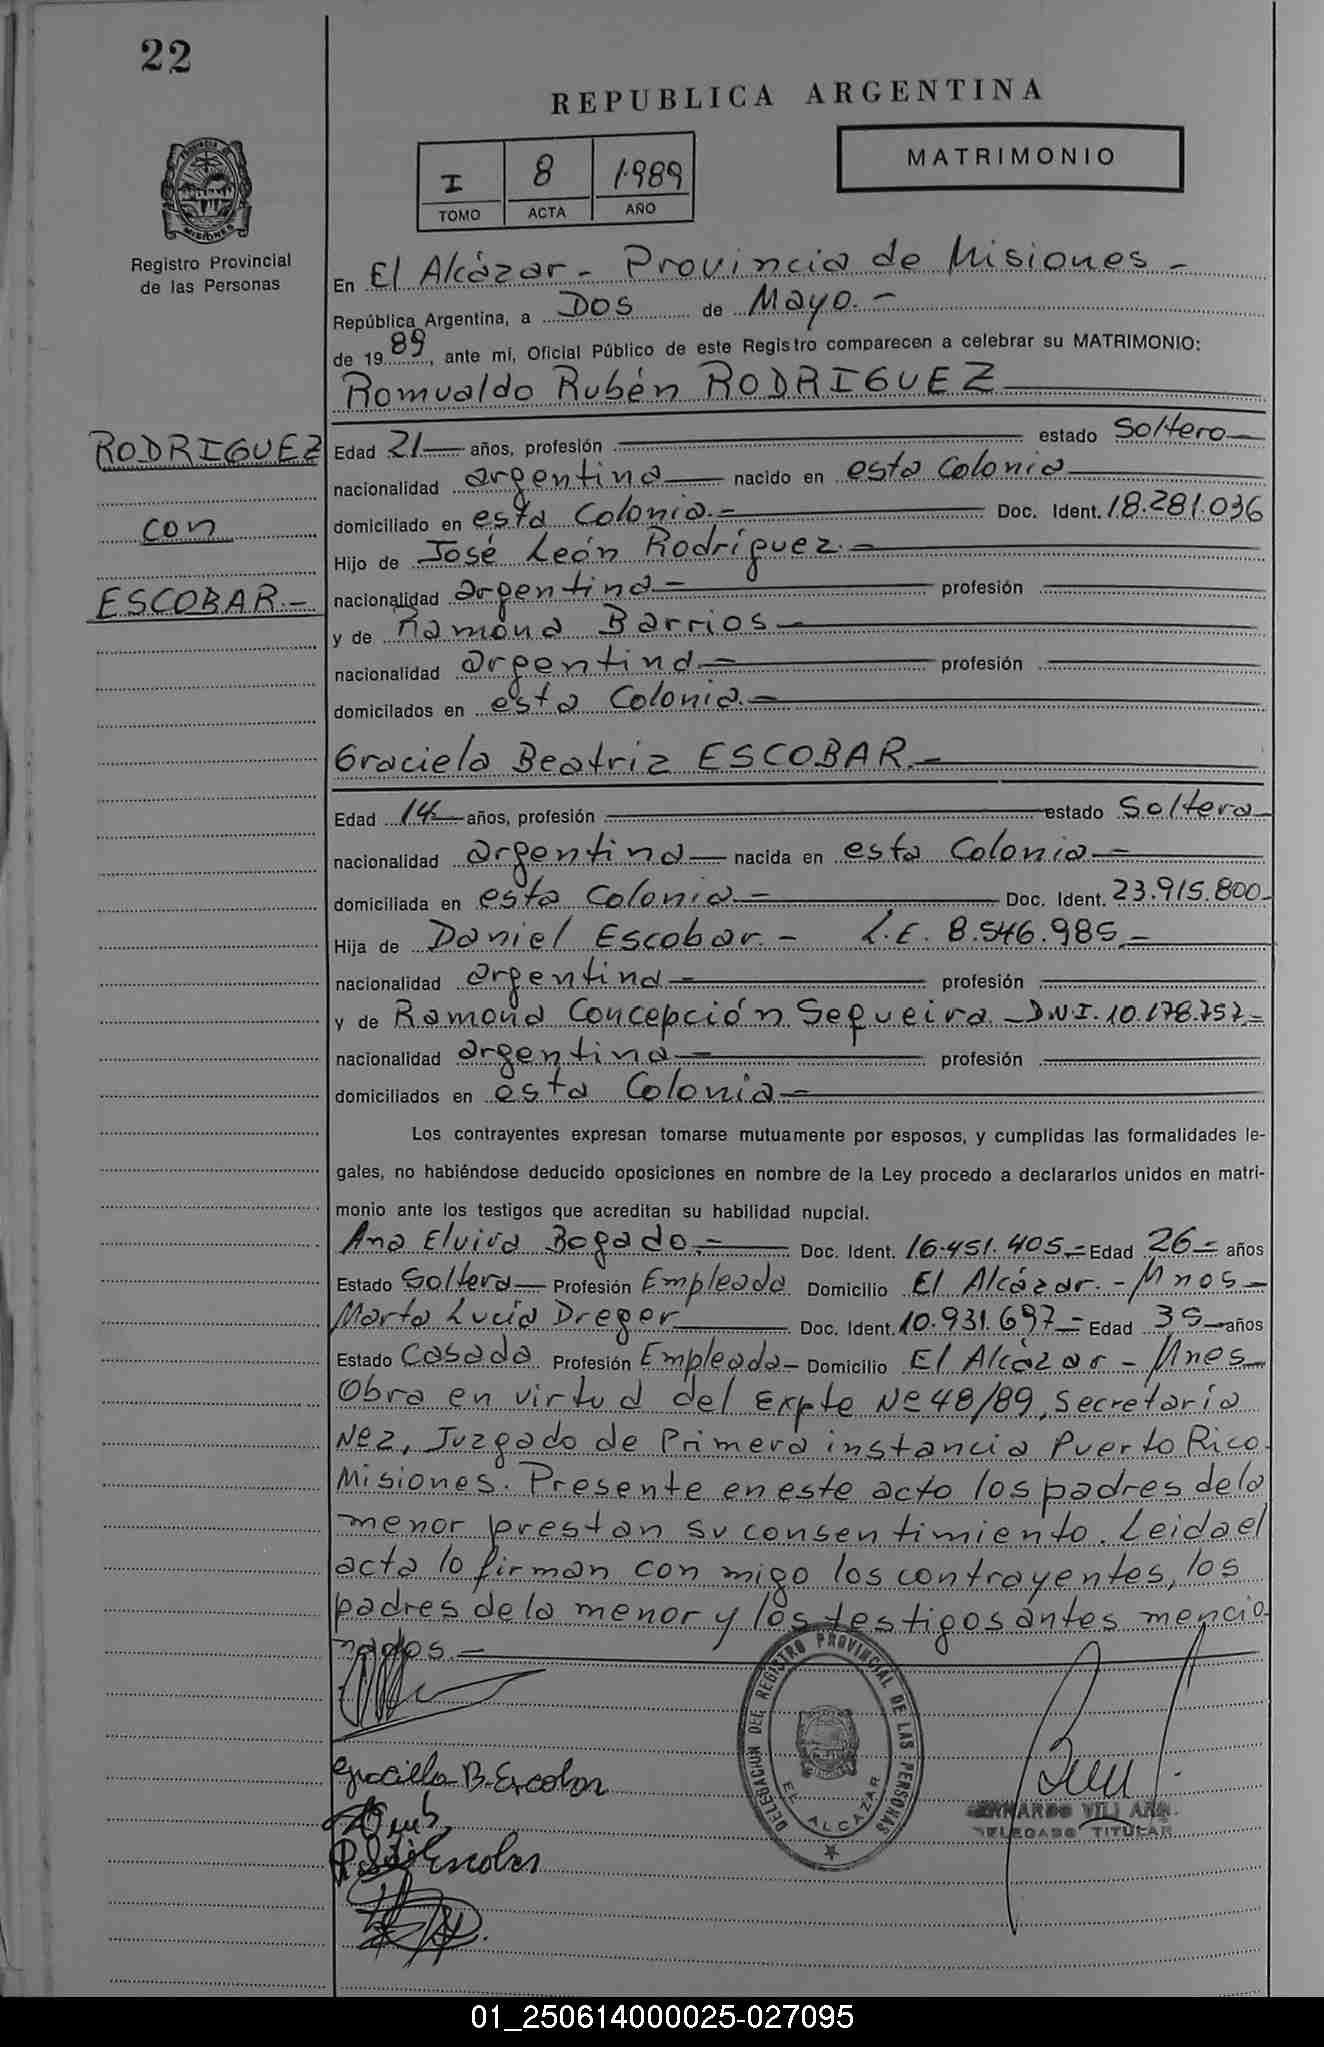 22
REPUBLICA ARGENTINA
MATRIMONIO
I 8 1989
TOMO ACTA AÑO
MISIONES
Registro Provincial
de las Personas
En El Alcázar - Provincia de Misiones -
República Argentina, a Dos de Mayo. -
de 1989, ante mí, Oficial Público de este Registro comparecen a celebrar su MATRIMONIO:
Romualdo Rubén RODRIGUEZ
RODRIGUEZ
con
ESCOBAR. -
Edad 21 años, profesión estado Soltero
nacionalidad argentina nacido en esta Colonia
domiciliado en esta Colonia. - Doc. Ident. 18.281.036
Hijo de José León Rodríguez. -
nacionalidad argentina - profesión
y de Ramona Barrios -
nacionalidad argentina - profesión
domicilados en esta Colonia. -
Graciela Beatriz ESCOBAR. -
Edad 14 años, profesión estado Soltera
nacionalidad argentina nacida en esta Colonia -
domiciliada en esta Colonia - Doc. Ident. 23.915.800-
Hija de Daniel Escobar. - L.E. 8.546.985. -
nacionalidad argentina - profesión
y de Ramona Concepción Sequeira - D.N.I. 10.178.757. -
nacionalidad argentina - profesión
domiciliados en esta Colonia -
Los contrayentes expresan tomarse mutuamente por esposos, y cumplidas las formalidades le-
gales, no habiéndose deducido oposiciones en nombre de la Ley procedo a declararlos unidos en matri-
monio ante los testigos que acreditan su habilidad nupcial.
Ana Elvira Bogado. - Doc. Ident. 16.451.405. - Edad 26 - años
Estado Soltera - Profesión Empleada Domicilio El Alcázar. - Mnos -
Marta Lucía Dreger Doc. Ident. 10.931.697 - Edad 35 años
Estado Casada Profesión Empleada - Domicilio El Alcázar - Mnes
Obra en virtud del Expte Nº 48/89, Secretaría
Nº 2, Juzgado de Primera instancia Puerto Rico.
Misiones. Presente en este acto los padres de la
menor prestan su consentimiento. Leida el
acta lo firman con migo los contrayentes, los
padres de la menor y los testigos antes mencio-
nados. -
Graciella B. Escobar
Escobar
DELEGACION DEL REGISTRO PROVINCIAL DE LAS PERSONAS
EL ALCAZAR
DELEGADO TITULAR
01_250614000025-027095